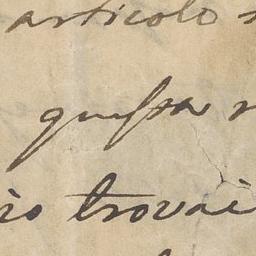 articolo
questa
io trovai